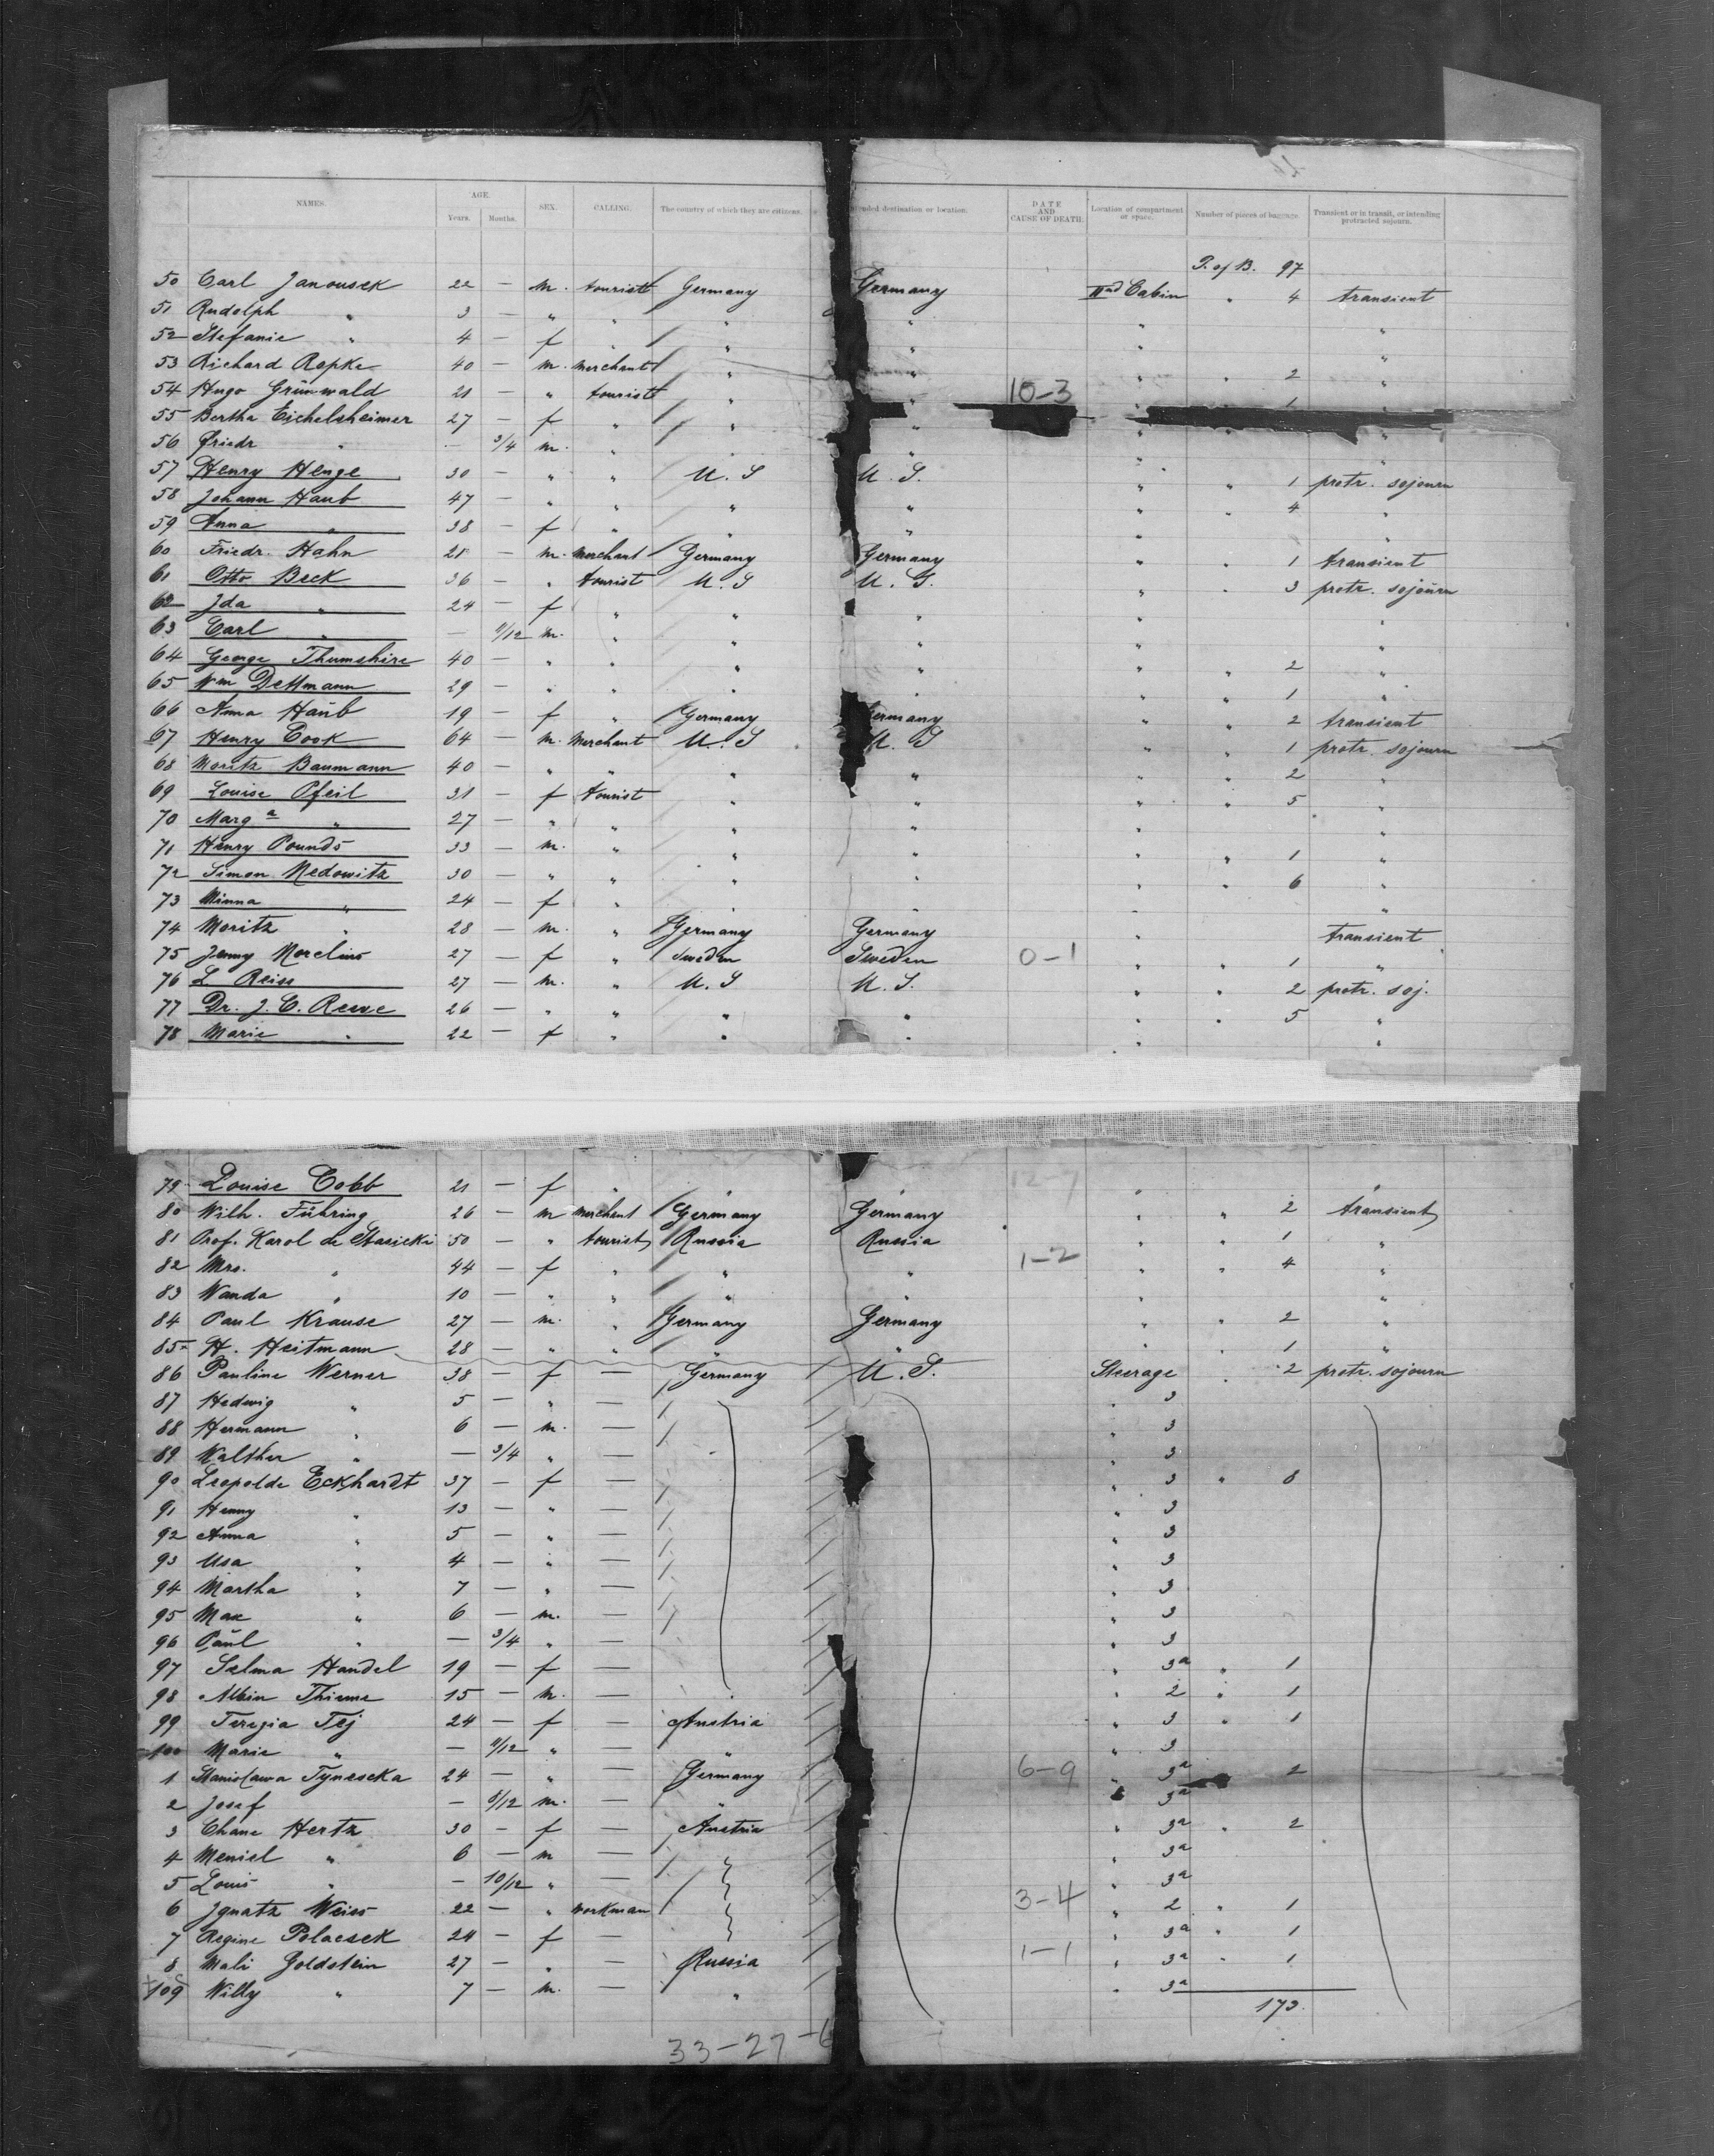 NAMES. AGE. Years. Months. SEX. CALLING. The country of which they are citizens. ended destination or location. DATE AND CAUSE OF DEATH. Location of compartment or space. Number of pieces of baggage Transient or in transit, or intending protracted sojourn.
P. of B. 97
50 Carl Janousek 22 — m. tourist Germany Germany IInd Cabin " 4 transient
51 Rudolph " 3 — " " " " " "
52 Stefanie " 4 — f " " " " "
53 Richard Ropke 40 — m. merchant " " " " 2 "
54 Hugo Grünwald 21 — " tourist " " 10-3 " " 1 "
55 Bertha Eichelsheimer 27 — f " " " " " "
56 Friedr " — 3/4 m. " " " " "
57 Henry Henge 30 — " " U. S U. S. " " 1 protr. sojourn
58 Johann Haub 47 — " " " " " " 4 "
59 Anna " 38 — f " " " " "
60 Friedr. Hahn 21 — m. merchant Germany Germany " " 1 transient
61 Otto Beck 36 — " tourist U. S U. S. " " 3 protr. sojourn
62 Ida " 24 — f " " " " "
63 Carl " — 11/12 m. " " " " "
64 George Thumshire 40 — " " " " " " 2 "
65 Wm Dettmann 29 — " " " " " " 1 "
66 Anna Haub 19 — f " Germany ermany " " 2 transient
67 Henry Cook 64 — m. merchant U. S U. S " " 1 protr. sojourn
68 Moritz Baumann 40 — " " " " " " 2 "
69 Louise Pfeil 31 — f tourist " " " " 5 "
70 Marga " 27 — " " " " " "
71 Henry Pounds 33 — m. " " " " " 1 "
72 Simon Medowitz 30 — " " " " " " 6 "
73 Minna " 24 — f " " " " "
74 Moritz " 28 — m. " Germany Germany " transient
75 Jenny 27 — f " Sweden Sweden 0-1 " " 1 "
76 L Reiss 27 — m. " U. S U. S. " " 2 protr. soj.
77 Dr. J. C. Reeve 26 — " " " " " " 5 "
78 Marie " 22 — f " " " " "
79 Louise Cobb 21 — f " " " " "
80 Wilh. Führing 26 — m merchant Germany Germany " " 2 transient
81 Prof. Karol de Stasicki 50 — " tourist Russia Russia " " 1 "
82 Mrs. " 44 — f " " " 1-2 " " 4 "
83 Wanda " 10 — " " " " " "
84 Paul Krause 27 — m. " Germany Germany " " 2 "
85 H. Heitmann 28 — " " " " " " 1 "
86 Pauline Werner 38 — f — Germany U. S. Steerage " 2 protr. sojourn
87 Hedwig " 5 — " — " 3
88 Hermann " 6 — m. — " 3
89 Walther " — 3/4 " — " 3
90 Leopolde Eckhardt 37 — f — " 3 " 8
91 Henny " 13 — " — " 3
92 Anna " 5 — " — " 3
93 " 4 — " — " 3
94 Martha " 7 — " — " 3
95 Max " 6 — m. — " 3
96 Paul " — 3/4 " — " 3
97 Selma Handel 19 — f — " 3a " 1
98 Albin Thieme 15 — m. — " " 2 " 1
99 Terezia Tej 24 — f — Austria " 3 " 1
100 Marie " — 11/12 " — " " 3
1 Stanislawa Tynescka 24 — " — Germany 6-9 " 3a " 2
2 Josef — 8/12 m. — " " 3a
3 Chane Hertz 30 — f — Austria " 3a " 2
4 Meniel " 6 — m — " 3a
5 Louis " — 10/12 " — " 3a
6 Ignatz Weiss 22 — " workman 3-4 " 2 " 1
7 Regine Polacsek 24 — f — " 3a " 1
8 Mali Goldstein 27 — " — Russia 1-1 " 3a " 1
109 Willy " 7 — m. — " " 3a
173.
33-27-6